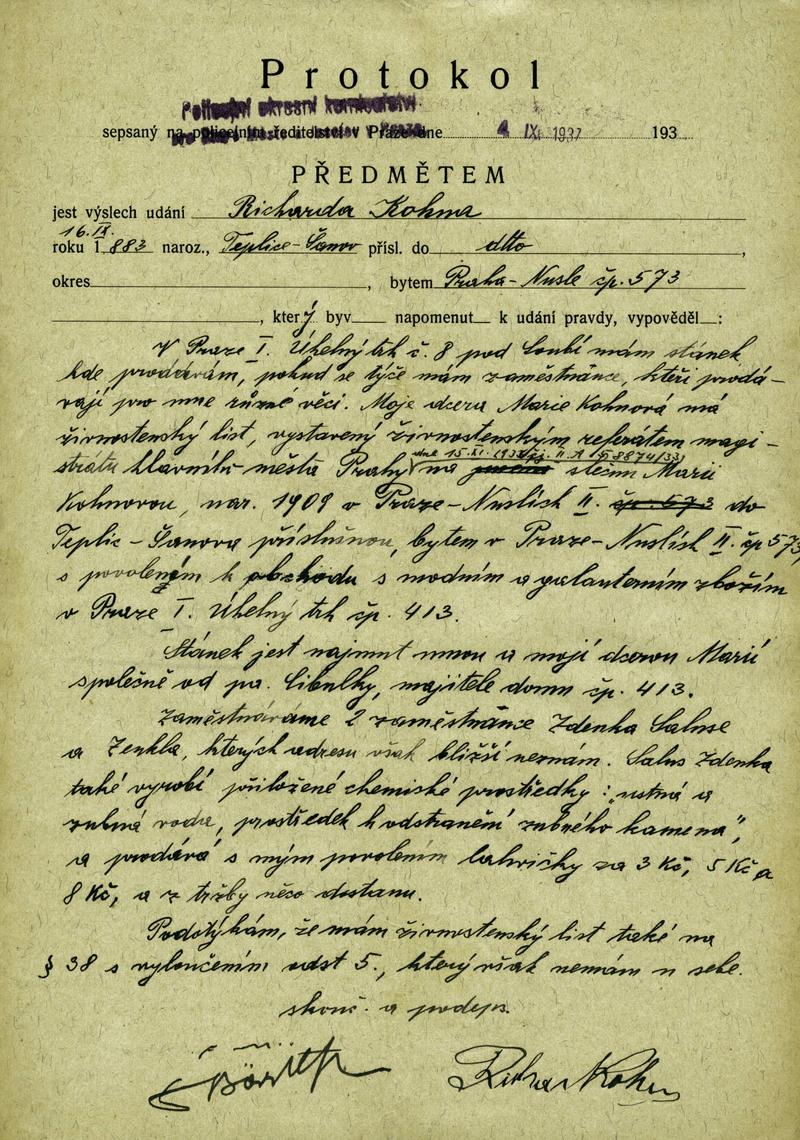 Protokol
Policejní okresní komisařství
sepsaný na policejním ředitelství v Praze dne 4 IX. 1937 193
PŘEDMĚTEM
jest výslech udání Richarda Kohna
16. IX.
roku 1 883 naroz., Teplice-Šanov přísl. do dtto ,
okres , bytem Praha-Nusle čp. 573
, který byv napomenut k udání pravdy, vypověděl :
V Praze I. Uhelný trh č. 8 pod loubí mám stánek
kde prodávám, pokud se týče mám zaměstnance, kteří prodá-
vají pro mne různé věci. Moje dcera Marie Kohnová má
živnostenský list, vystavený živnostenským referátem magi-
strátu hlavního města Prahy dne 15.XI. 1933 čj. II. A 8874/33 na jméno slečnu Marii
Kohnovou, nar. 1909 v Praze-Nuslích II. čp. 573 do
Teplic-Šanova příslušnou, bytem v Praze-Nuslích II. čp 573,
s povolením k obchodu s modním a galanterním zbožím
v Praze I. Uhelný trh čp. 413.
Stánek jest najmut mnou a mojí dcerou Marií
společně od pa. Cibulky, majitele domu čp. 413.
Zaměstnáváme 2 zaměstnance Zdenka Saluse
a Zenkla, kterých adresu však bližší neznám. Salus Zdenka
také vyrobí přiložené chemické prostředky: „ustná a
zubná voda, prostředek k odstranění zubného kamena",
a prodává s mým povolením lahvičky za 3 Kč, 5 Kč a
8 Kč, a z tržby něco dostanu.
Podotýkám, že mám živnostenský list také na
§ 38 s vyloučením odst 5., který však nemám u sebe.
skonč. a podeps.
Richard Kohn